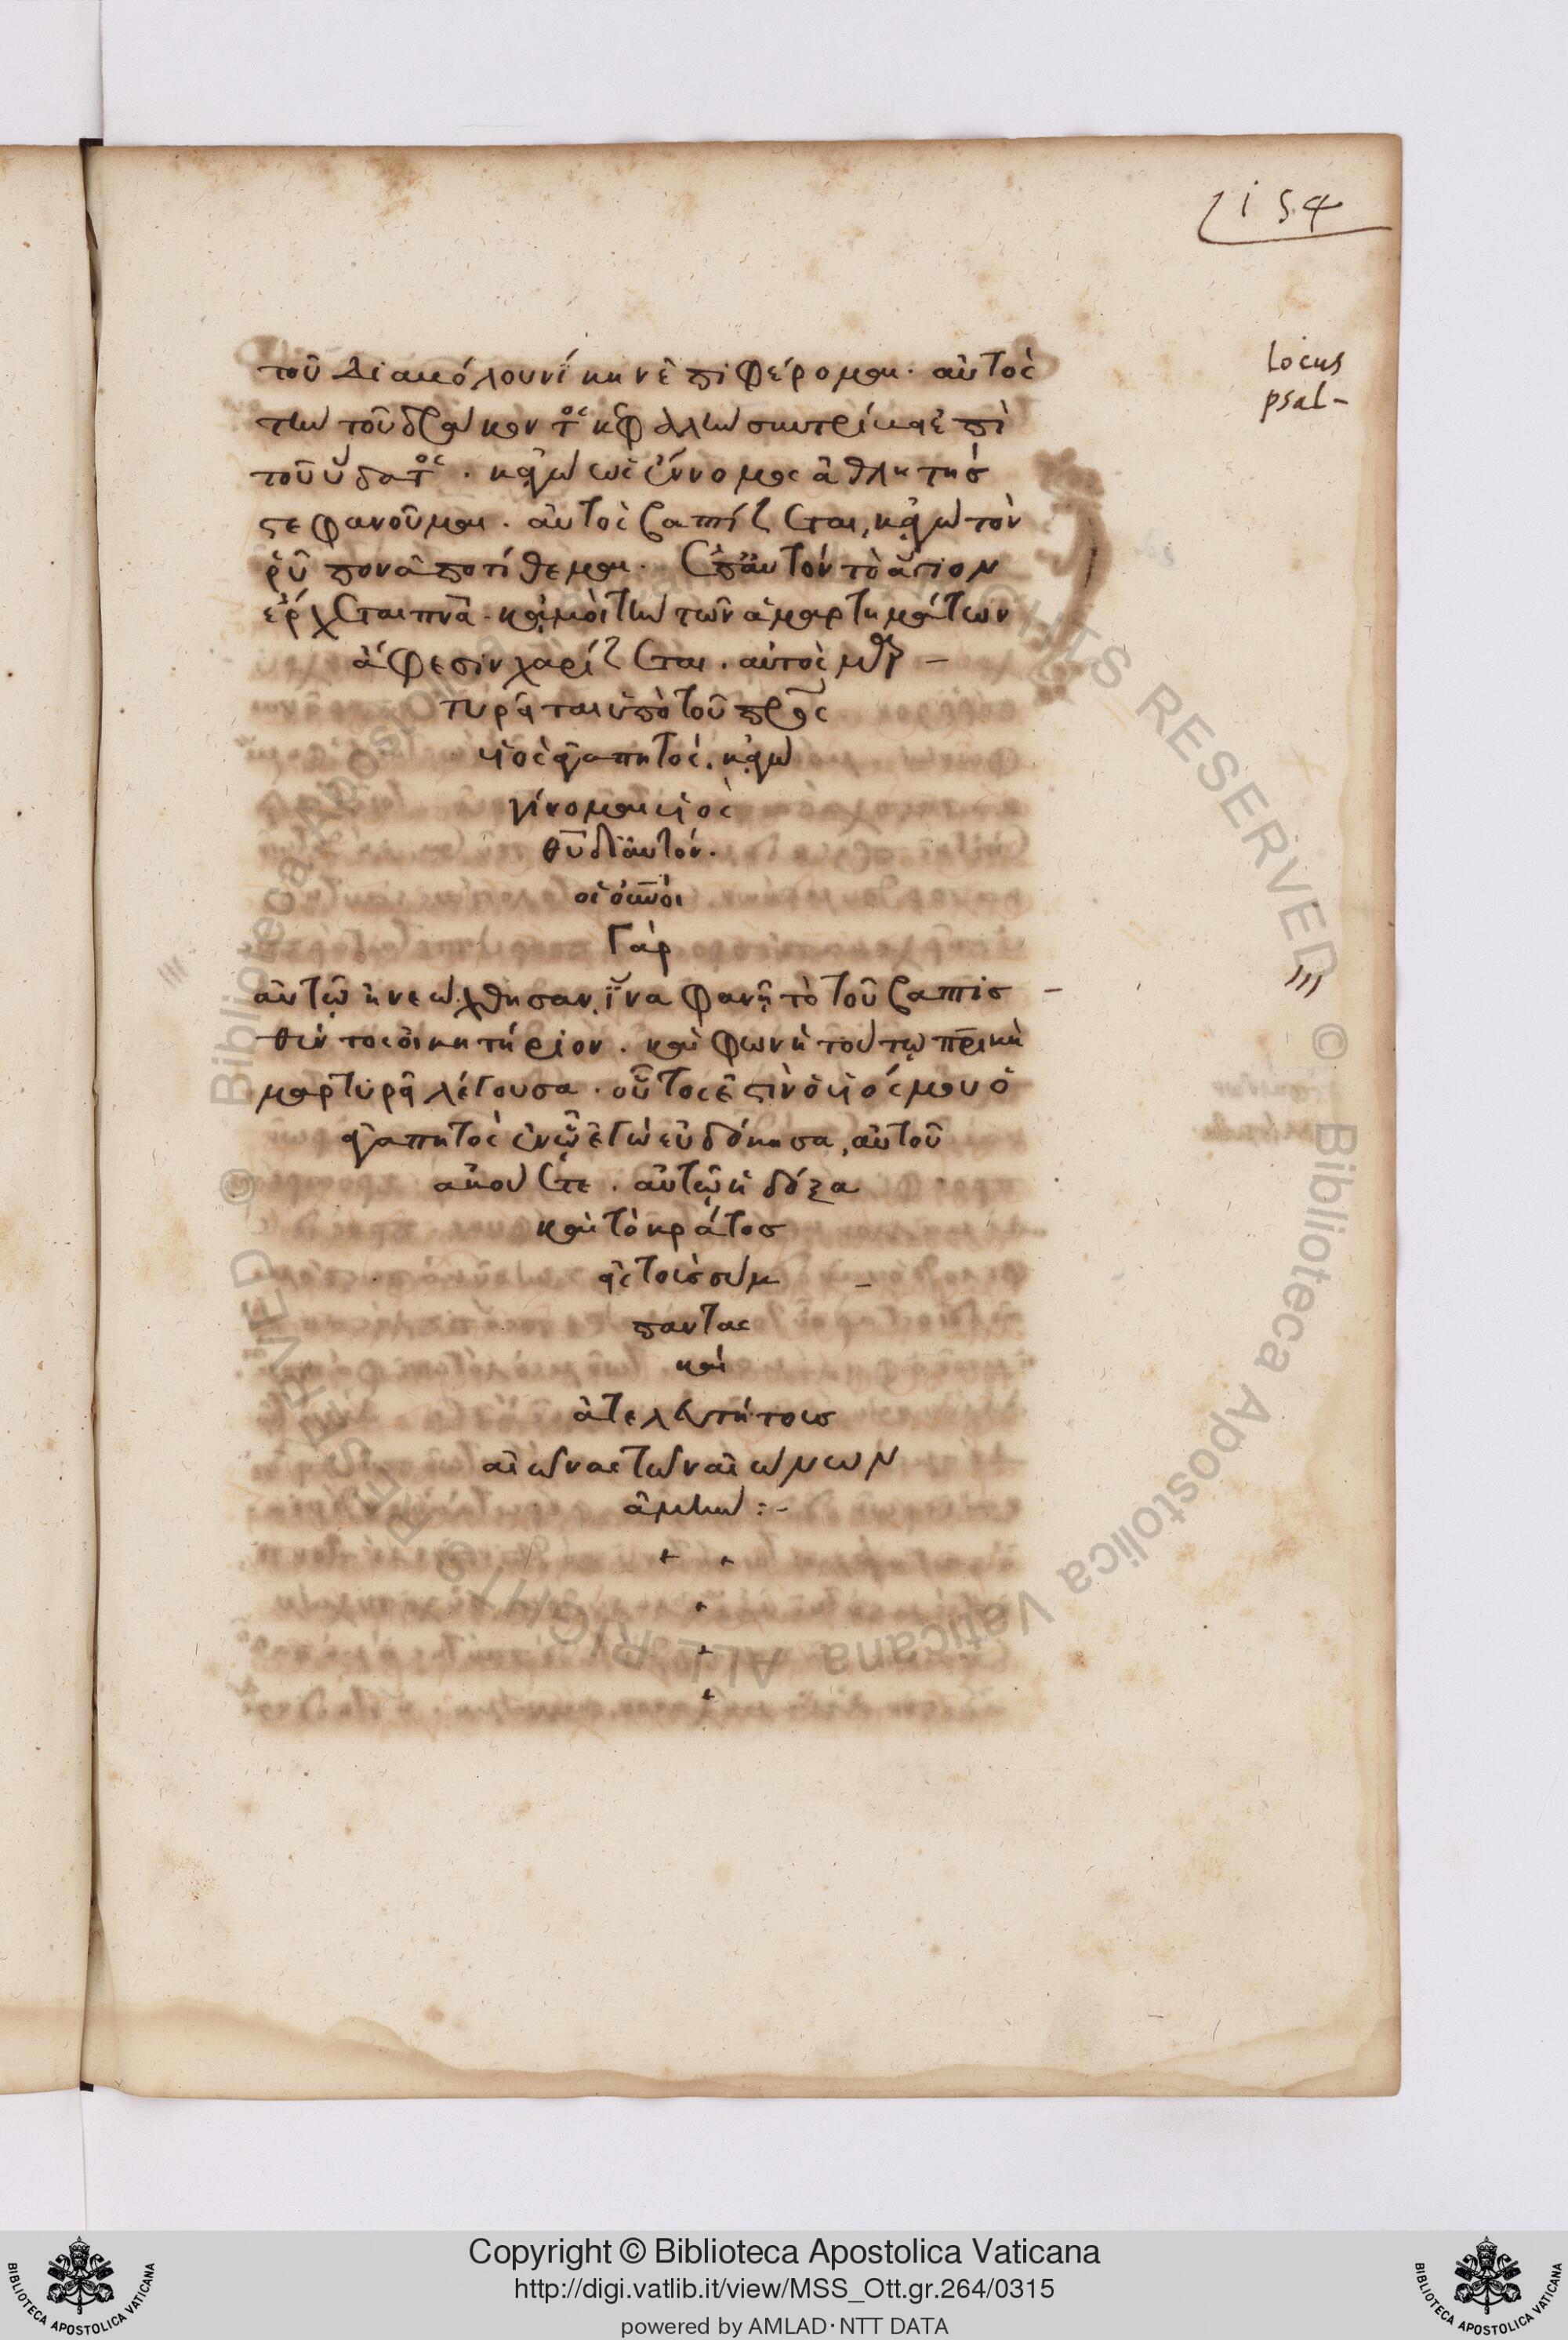 154
locus
psal-
τοῦ διαβόλου νίκην ἐπιφέρομαι. αὐτὸς
τὴν τοῦ δράκοντος κεφαλὴν συντρίβει ἐπὶ
τοῦ ὕδατος. κἀγὼ ὡς ἔννομος ἀθλητὴς
στεφανοῦμαι. αὐτὸς βαπτίζεται, κἀγὼ τὸν
ῥύπον ἀποτίθεμαι. ἐπ' αὐτὸν τὸ ἅγιον
ἔρχεται πνᾶ. καὶ μοὶ τὴν τῶν ἁμαρτημάτων
ἄφεσιν χαρίζεται. αὐτὸς μαρ-
τυρεῖται ὑπὸ τοῦ πρς
υἱὸς ἀγαπητός. κἀγὼ
γίνομαι υἱὸς
θυ δι' αὐτόν.
οἱ οὐνοὶ
Γὰρ
αὐτῷ ἠνεῴχθησαν, ἵνα φανῇ τὸ τοῦ βαπτισ-
θέντος οἰκητήριον. καὶ φωνὴ τούτῳ πρικὴ
μαρτυρεῖ λέγουσα. οὗτος ἐστὶν ὁ υἱός μου ὁ
ἀγαπητὸς ἐν ᾧ ἐγὼ εὐδόκησα, αὐτοῦ
ἀκούετε. αὐτῷ ἡ δόξα
καὶ τὸ κράτος
εἰς τοὺς συμ-
παντας
καὶ
ἀτελευτήτους
αἰῶνας τῶν αἰώνων
ἀμήν :-
Copyright © Biblioteca Apostolica Vaticana
http://digi.vatlib.it/view/MSS_Ott.gr.264/0315
powered by AMLAD·NTT DATA
BIBLIOTECA APOSTOLICA VATICANA
BIBLIOTECA APOSTOLICA VATICANA
© Biblioteca Apostolica Vaticana ALL RIGHTS RESERVED